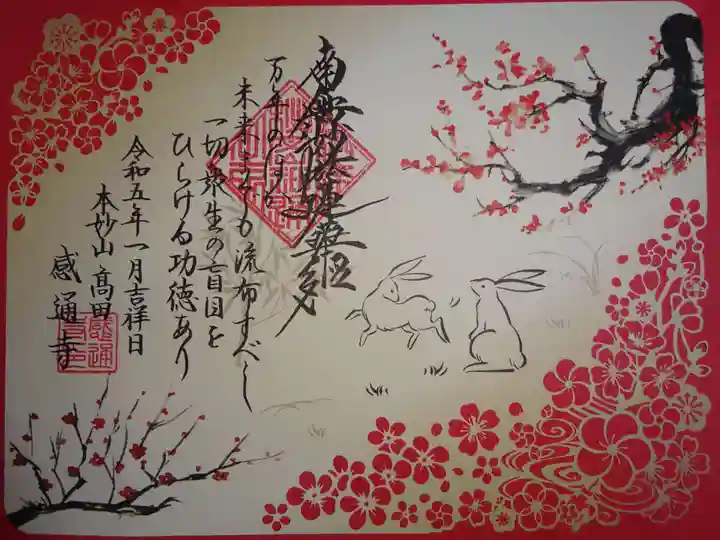 南無妙法蓮華経
万年のほか
未来までも流布すべし
一切衆生の盲目を
ひらける功徳あり
令和五年一月吉祥日
本妙山髙田
感通寺